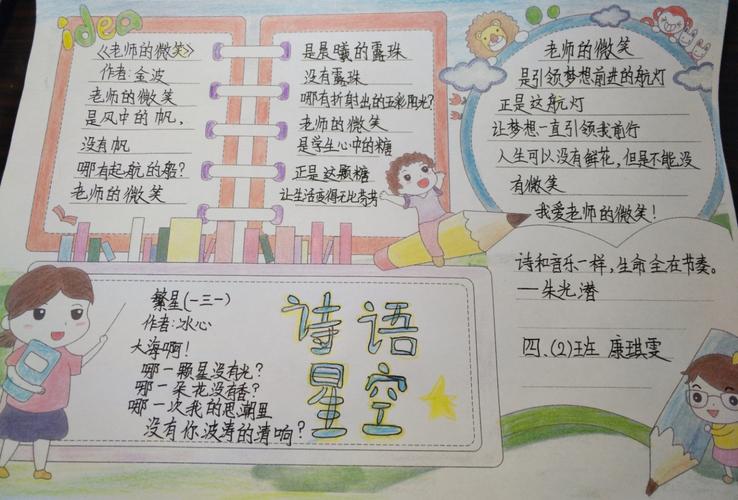 idea
《老师的微笑》
作者:金波
老师的微笑
是风中的帆,
没有帆
哪有起航的船?
老师的微笑
是晨曦的露珠
没有露珠
哪有折射出的五彩阳光?
老师的微笑
是学生心中的糖
正是这颗糖
让生活变得无比奇芳
老师的微笑
是引领梦想前进的航灯
正是这航灯
让梦想一直引领我前行
人生可以没有鲜花,但是不能没
有微笑
我爱老师的微笑!
繁星(一三一)
作者:冰心
大海啊!
哪一颗星没有光?
哪一朵花没有香?
哪一次我的思潮里
没有你波涛的清响?
诗语
星空
诗和音乐一样,生命全在节奏。
——朱光潜
四、(2)班 康琪雯